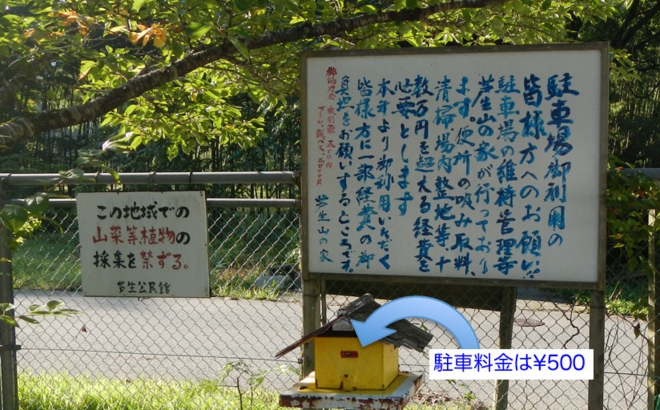 駐車場御利用の
皆様方へのお願い
駐車場の維持管理等
芦生山の家が行っており
ます。便所の吸み取料、
清掃場内整地等十
数万円を超える経費を
必要とします
本年より御利用いただく
皆様方に一部経費の御
負担をお願いするところです。
芦生山の家
この地域での
山菜等植物の
採集を禁ずる。
芦生公民館
駐車料金は¥500